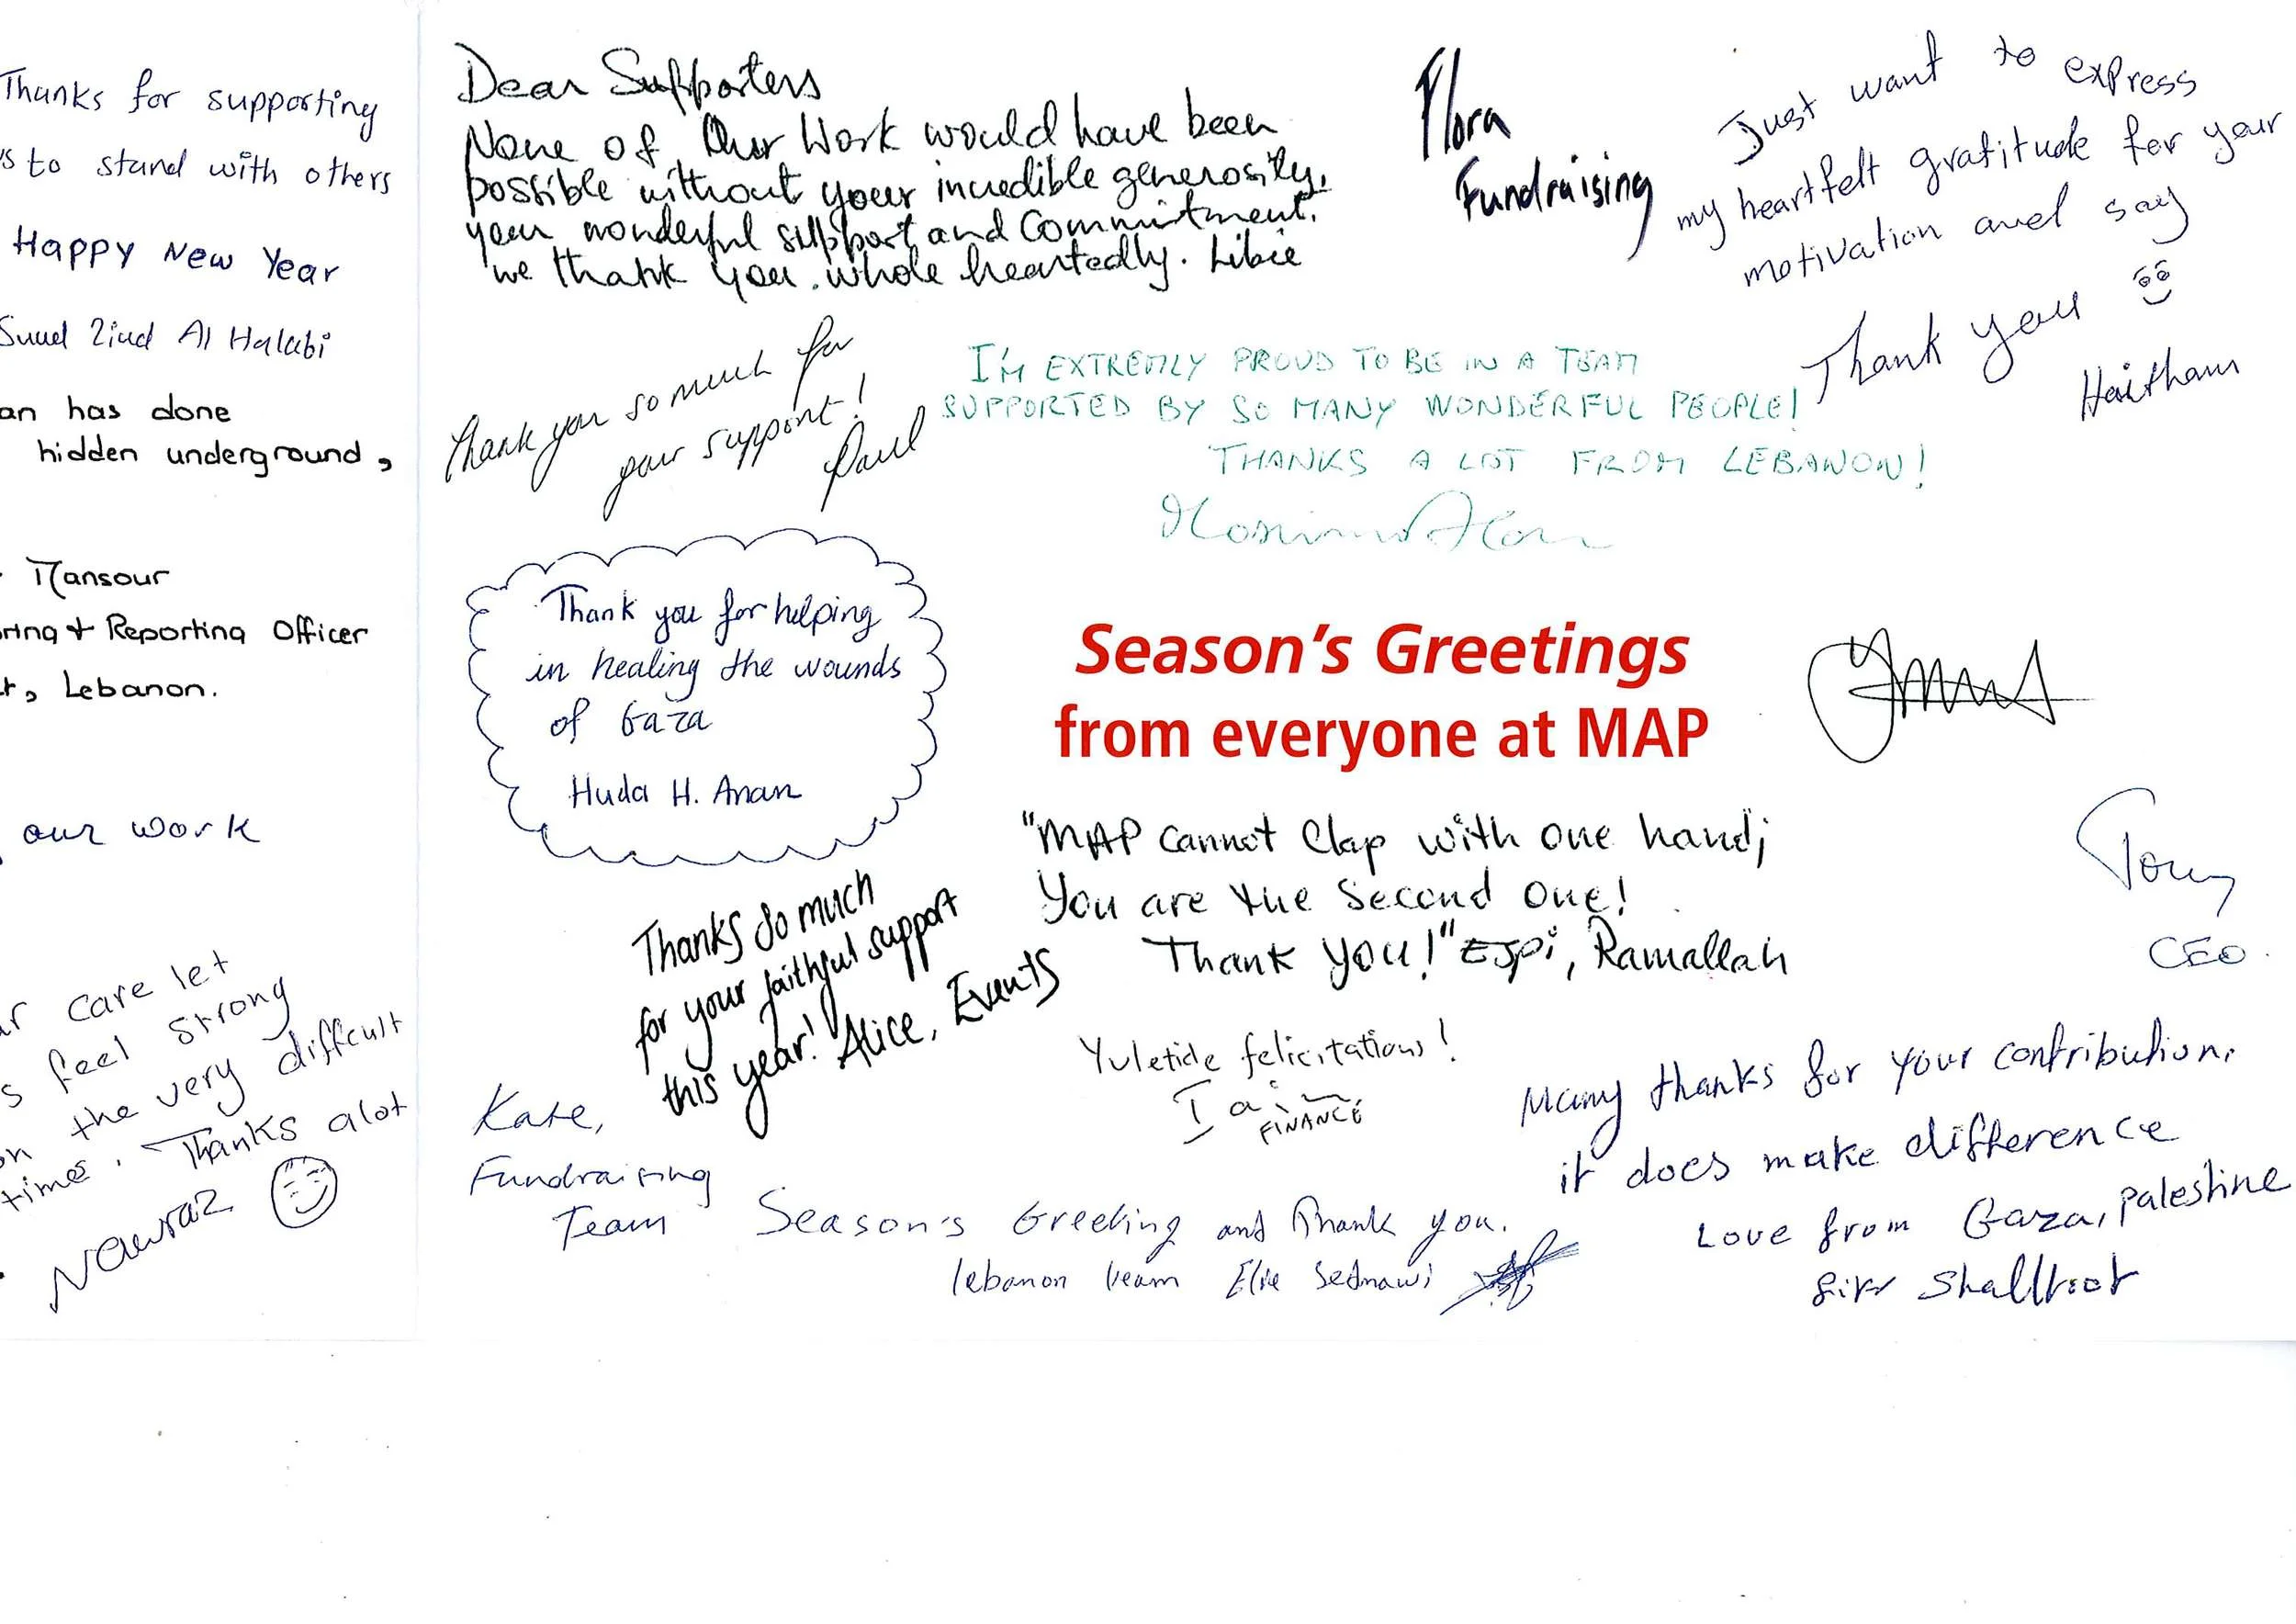 Thanks for supporting
us to stand with others
Happy New Year
Al Halabi
an has done
hidden underground,
Mansour
ring + Reporting Officer
t, Lebanon.
our work
r care let
s feel strong
on the very difficult
time. Thanks alot
Nawraz
Dear Supporters
None of Our Work would have been
possible without your incredible generosity,
your wonderful support and Commitment.
we thank you whole heartedly. Libie
Flora
Fundraising
Just want to express
my heartfelt gratitude for your
motivation and say
Thank you
Haitham
Thank you so much for
your support!
Paul
I'M EXTREMLY PROUD TO BE IN A TEAM
SUPPORTED BY SO MANY WONDERFUL PEOPLE!
THANKS A LOT FROM LEBANON!
Thank you for helping
in healing the wounds
of Gaza
Huda H. Anan
Season's Greetings
from everyone at MAP
"MAP cannot Clap with one hand;
You are the Second one!
Thank you!" Ramallah
Tony
CEO.
Thanks so much
for your faithful support
this year! Alice, Events
Yuletide felicitations!
Iain
FINANCE
Kate,
Fundraising
Team
Season's Greeting and Thank you.
lebanon team Elie Sednawi
Many thanks for your contribution.
it does make difference
Love from Gaza, palestine